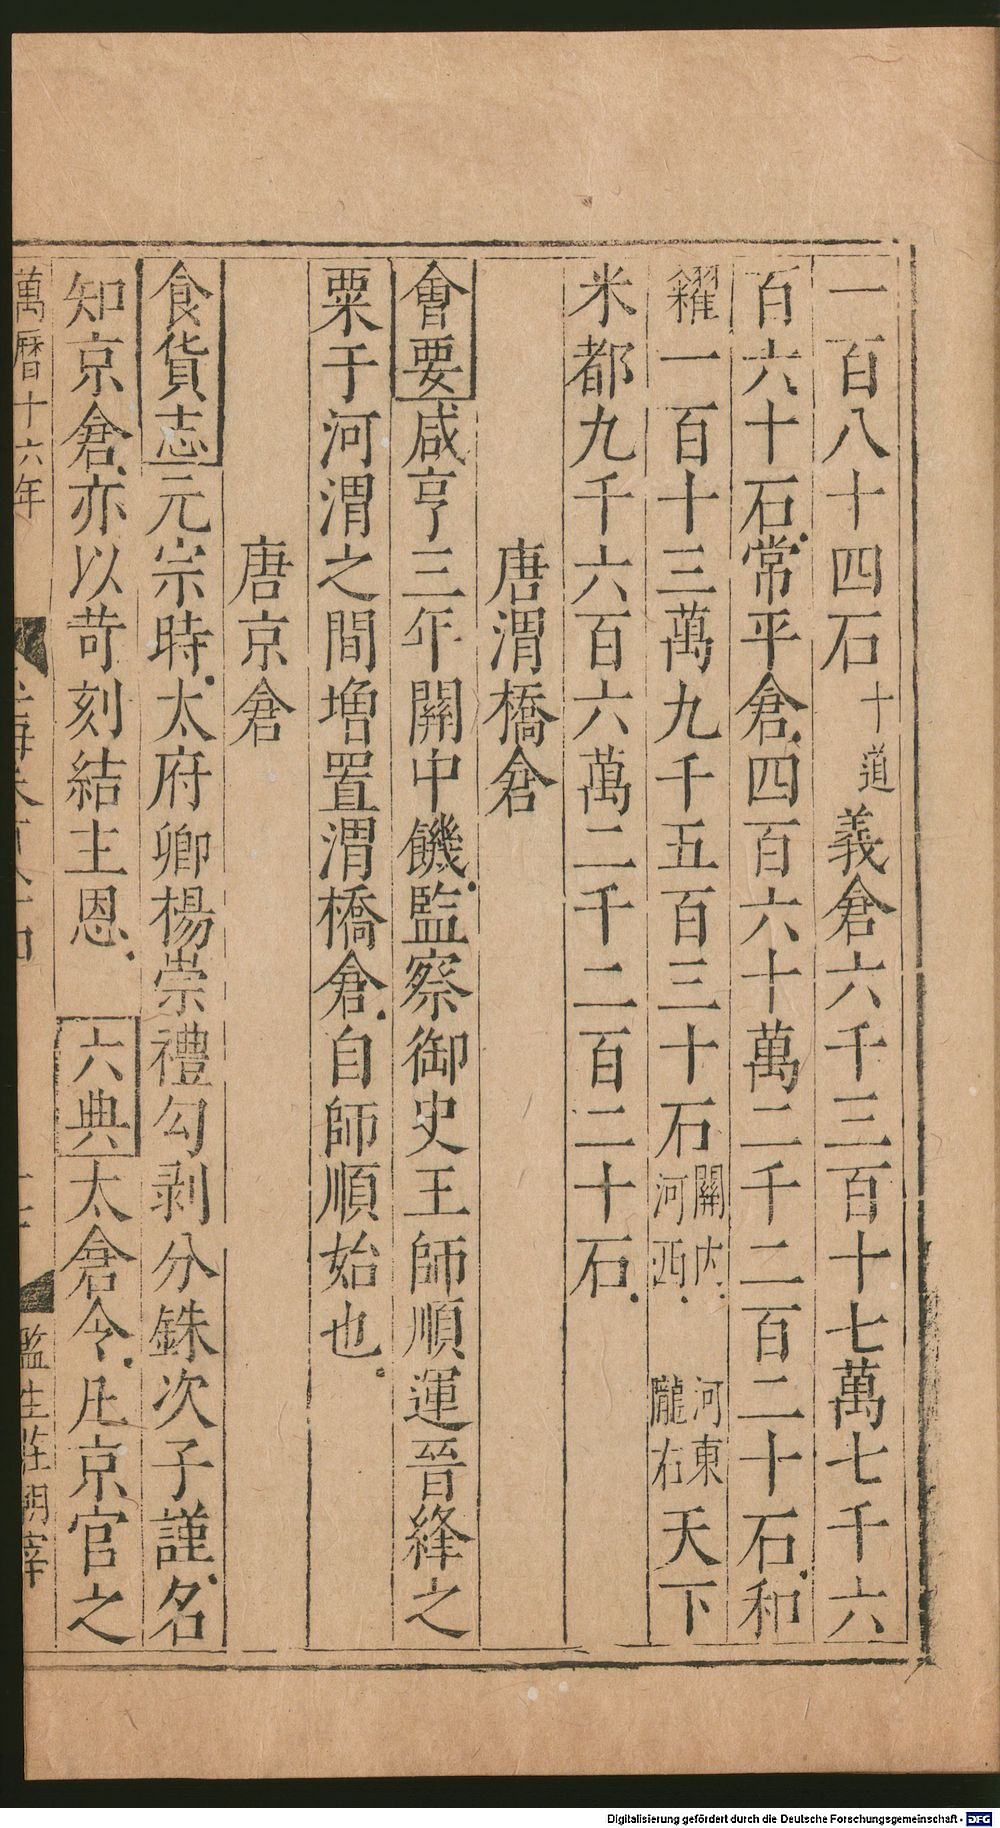 一百八十四石十道義倉六千三百十七萬七千六
百六十石常平倉四百六十萬二千二百二十石和
糴一百十三萬九千五百三十石關内河西河東隴右天下
米都九千六百六萬二千二百二十石
唐渭橋倉
會要咸亨三年關中饑監察御史王師順運晉絳之
粟于河渭之間增置渭橋倉自師順始也
唐京倉
食貨志元宗時太府卿楊崇禮勾剥分銖次子謹名
知京倉亦以苛刻結主恩六典太倉令凡京官之
萬曆十六年
監生
Digitalisierung gefördert durch die Deutsche Forschungsgemeinschaft - DFG